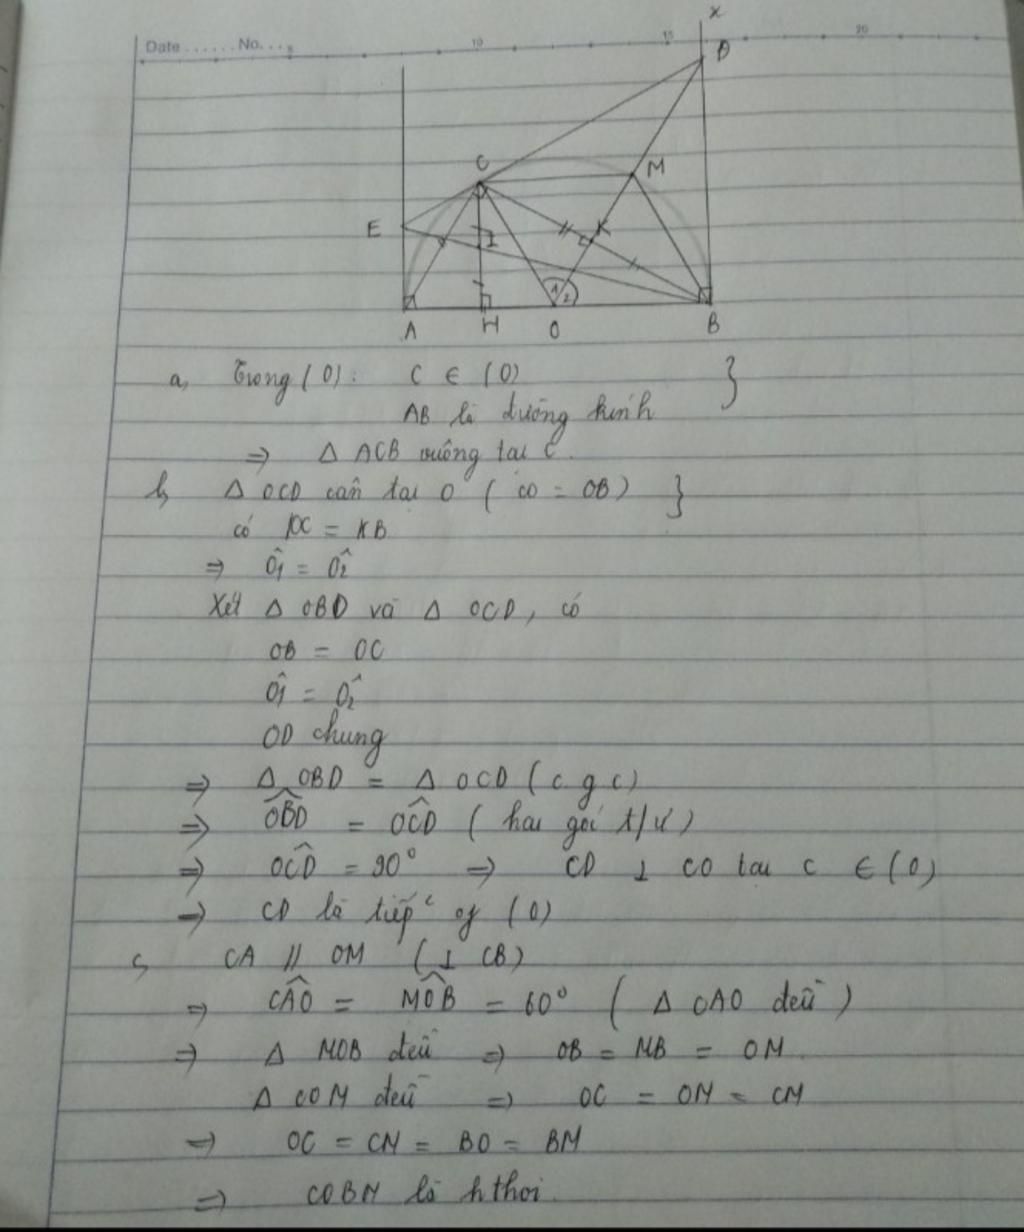 x
Date ...... No. ...
10 15 20
D
C
M
E
I
K
1 2
A H O B
a, Trong (O): C ∈ (O) }
AB là đường kính
⇒ Δ ACB vuông tại C.
b, Δ OCD cân tại O (CO = OB) }
có KC = KB
⇒ Ô1 = Ô2
Xét Δ OBD và Δ OCD, có
OB = OC
Ô1 = Ô2
OD chung
⇒ Δ OBD = Δ OCD (c g c)
⇒ OBD^ = OCD^ (hai góc t/ư)
⇒ OCD^ = 90° ⇒ CD ⊥ CO tại C ∈ (O)
⇒ CD là tiếp^c of (O)
c, CA // OM (⊥ CB)
⇒ CAO^ = MOB^ = 60° (Δ CAO đều)
⇒ Δ MOB đều ⇒ OB = MB = OM
Δ COM đều ⇒ OC = OM = CM
⇒ OC = CM = BO = BM
⇒ COBM là h thoi.